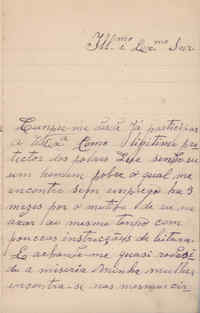 Ill.mo e Ex.mo Snr
Cumpre-me participar
a V. Ex.a Como legitimo pro
tector dos pobres
um homem pobre o qual me
encontro sem emprego ha 3
mezes por o motivo de eu me
achar ao mesmo tempo com
poucas instrucções de leitura.
E achando-me quasi
de a miseria Minha mulher
encontra-se nas mesmas cir